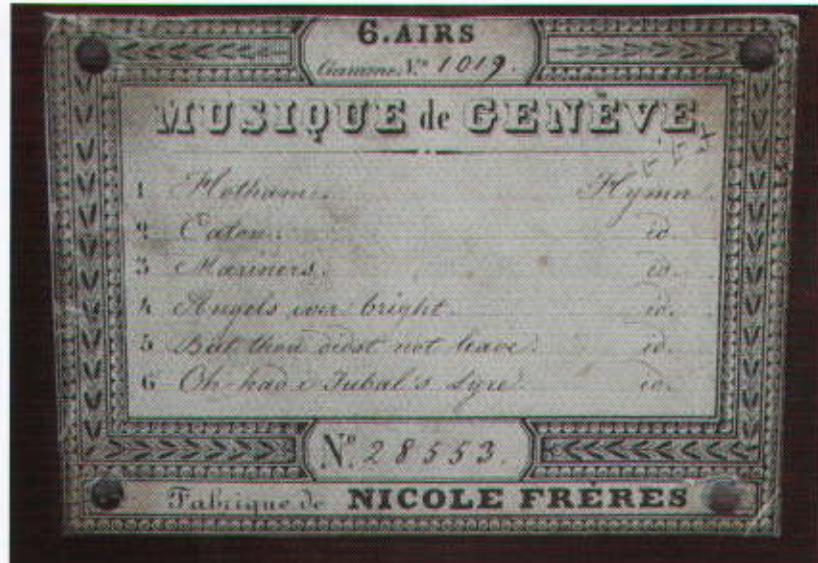 6. AIRS
Gamme Nº 1019.
MUSIQUE de GENÈVE
1 Hotham. Hymn
2 Caton. id.
3 Mariners. id.
4 Angels ever bright. id.
5 But thou didst not leave. id.
6 Oh had i Jubal's Lyre. id.
Nº 28553.
Fabrique de NICOLE FRÈRES